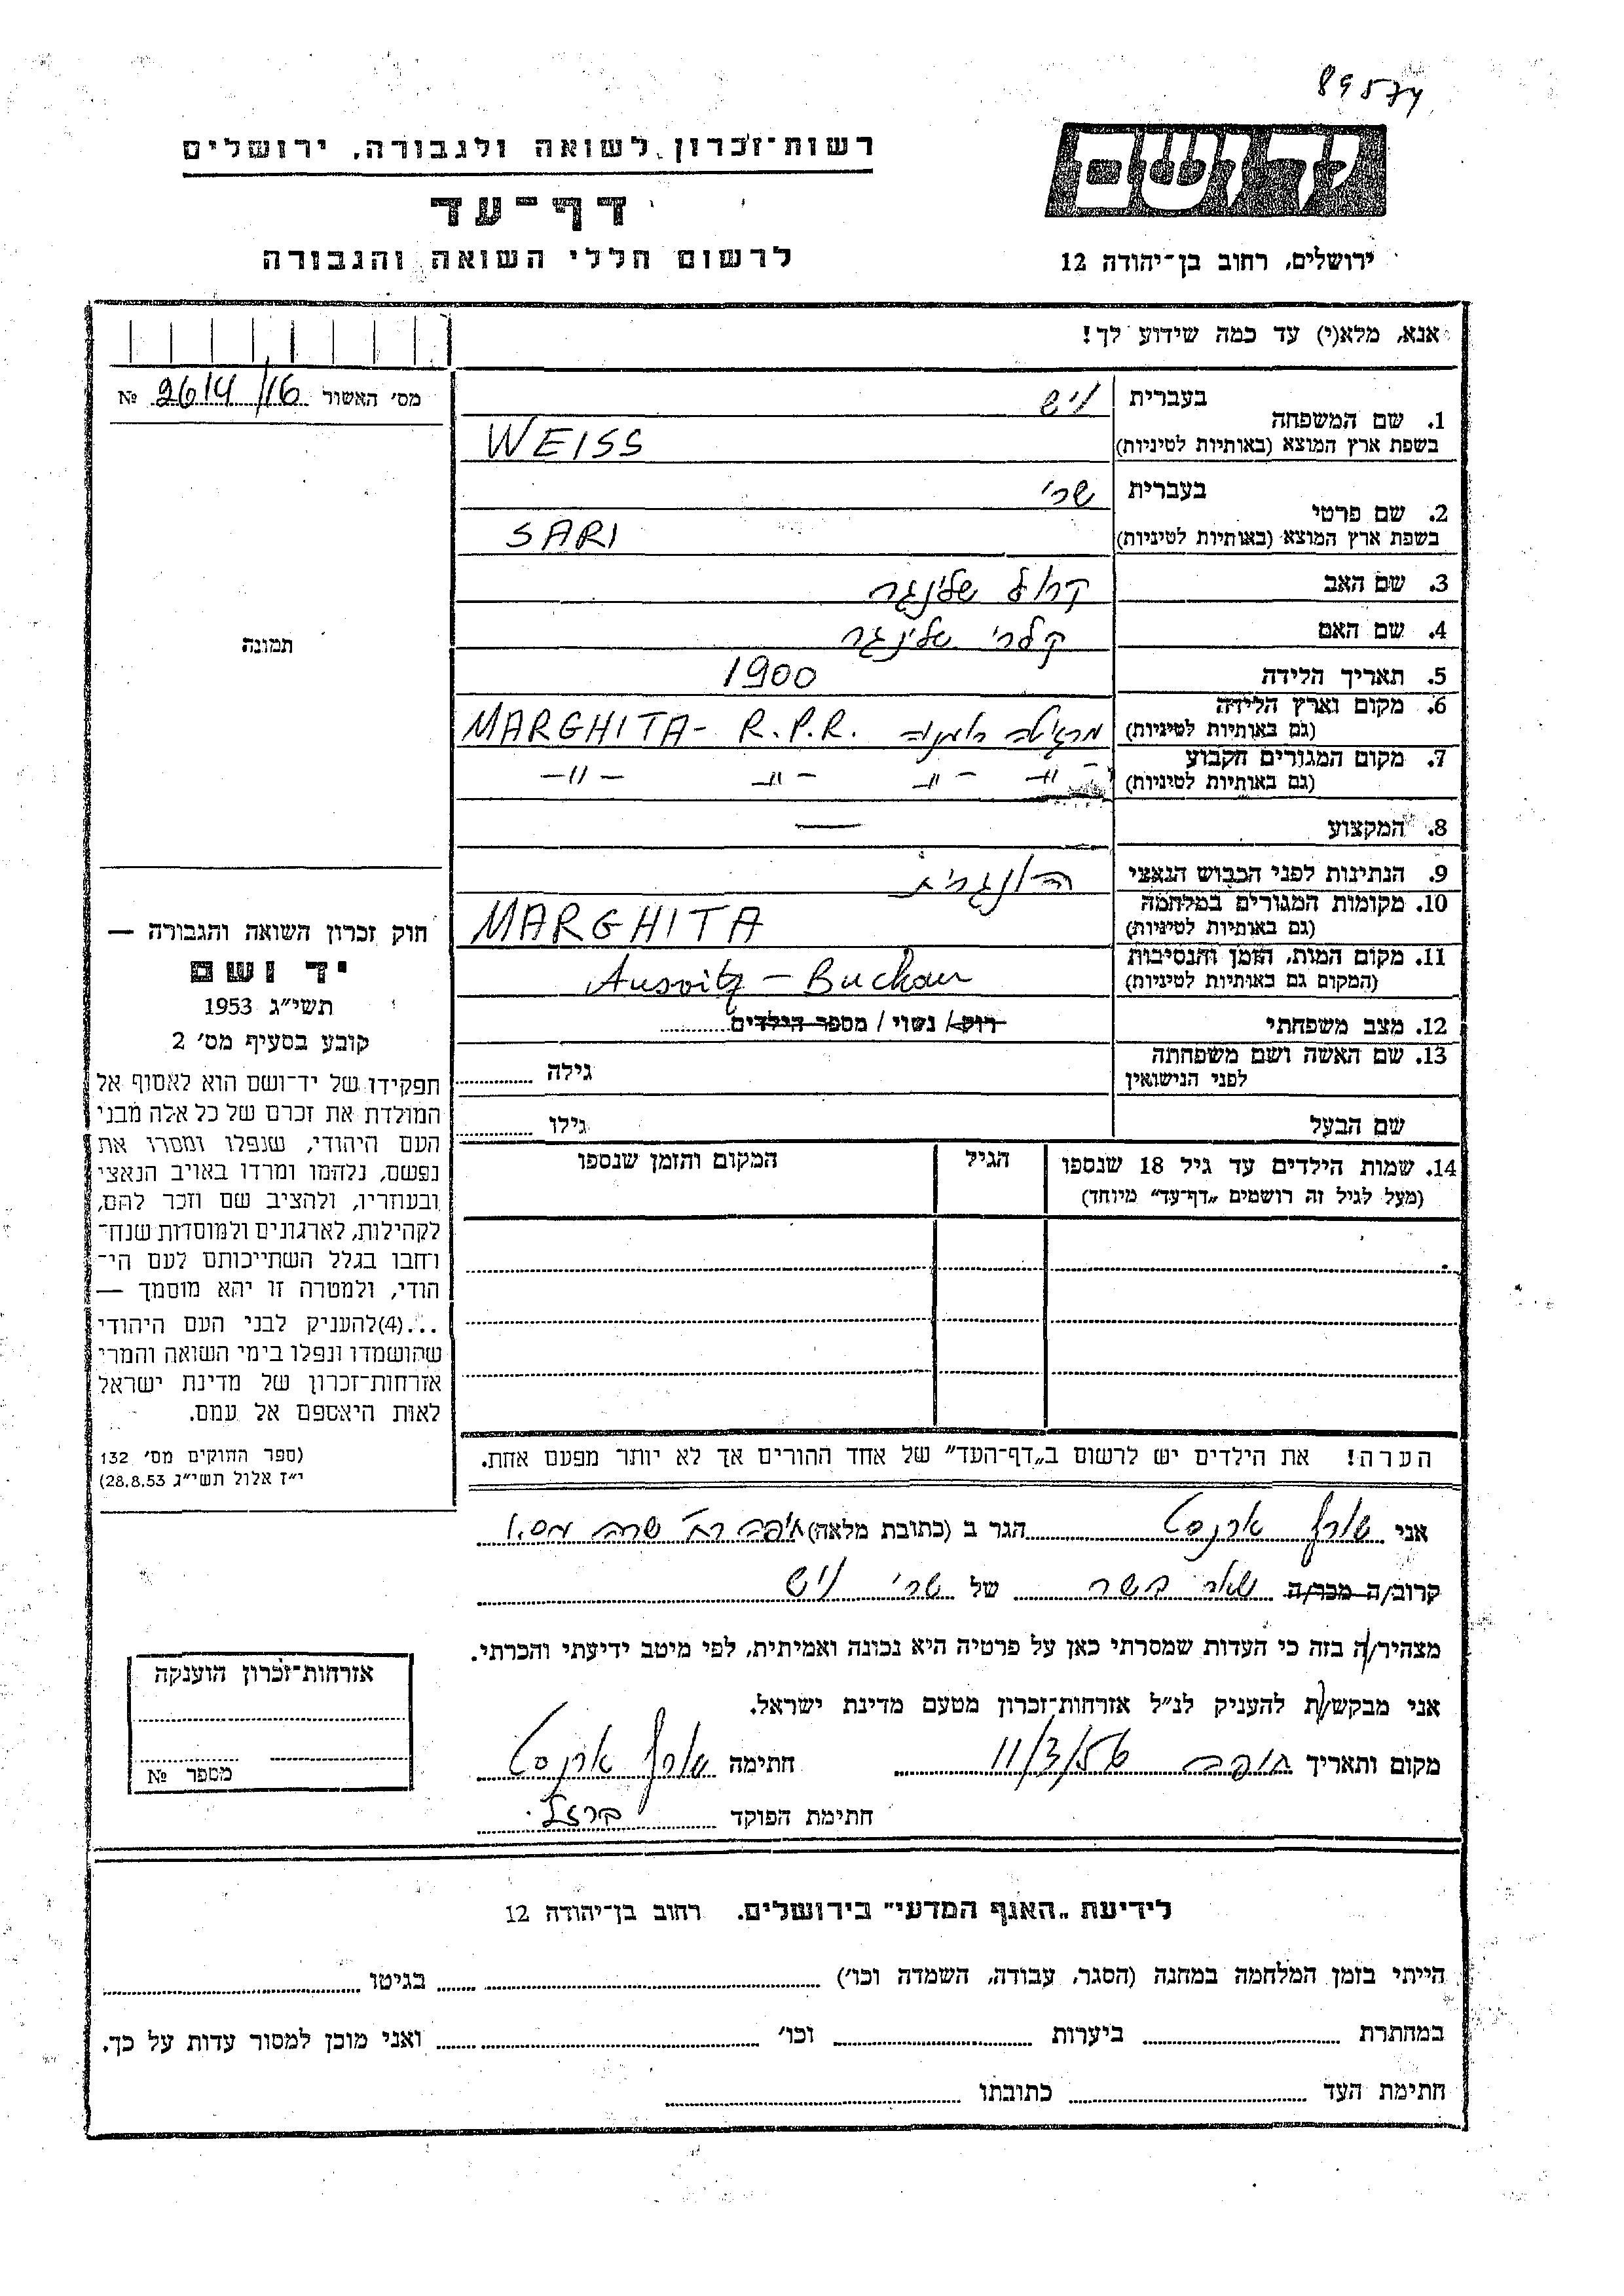 89574
רשות־זכרון לשואה ולגבורה, ירושלים
יד ושם
דף־עד
לרשום חללי השואה והגבורה
ירושלים, רחוב בן־יהודה 12
אנא, מלא(י) עד כמה שידוע לך!
מס' האשור 2614/16 №
1. שם המשפחה
בעברית וייס
בשפת ארץ המוצא (באותיות לטיניות) WEISS
2. שם פרטי
בעברית שרי
בשפת ארץ המוצא (באותיות לטיניות) SARI
3. שם האב קרול שלינגר
4. שם האם קלרי שלינגר
תמונה
5. תאריך הלידה 1900
6. מקום וארץ הלידה
(גם באותיות לטיניות) מרגיטה רומניה MARGHITA - R.P.R.
7. מקום המגורים הקבוע
(גם באותיות לטיניות) –״– –״– –״– –״–
8. המקצוע —
9. הנתינות לפני הכבוש הנאצי הונגרית
10. מקומות המגורים במלחמה
(גם באותיות לטיניות) MARGHITA
11. מקום המות, הזמן והנסיבות
(המקום גם באותיות לטיניות) Ausvitz – Buckau
12. מצב משפחתי רוק/ נשוי / מספר הילדים
13. שם האשה ושם משפחתה
לפני הנישואין
גילה
שם הבעל גילו
14. שמות הילדים עד גיל 18 שנספו
(מעל לגיל זה רושמים „דף־עד״ מיוחד)
הגיל
המקום והזמן שנספו
חוק זכרון השואה והגבורה —
יד ושם
תשי״ג 1953
קובע בסעיף מס' 2
תפקידו של יד־ושם הוא לאסוף אל
המולדת את זכרם של כל אלה מבני
העם היהודי, שנפלו ומסרו את
נפשם, נלחמו ומרדו באויב הנאצי
ובעוזריו, ולהציב שם וזכר להם,
לקהילות, לארגונים ולמוסדות שנח־
רחבו בגלל השתייכותם לעם הי־
הודי, ולמטרה זו יהא מוסמך —
...(4)להעניק לבני העם היהודי
שהושמדו ונפלו בימי השואה והמרי
אזרחות־זכרון של מדינת ישראל
לאות היאספם אל עמם.
(ספר החוקים מס' 132
י״ז אלול תשי״ג 28.8.53)
הערה! את הילדים יש לרשום ב„דף־העד״ של אחד ההורים אך לא יותר מפעם אחת.
אני שורץ ארנסט הגר ב (כתובת מלאה) חיפה רח' שרה מס. 1
קרוב/ה מכר/ה שאר בשר של שרי וייס
מצהיר/ה בזה כי העדות שמסרתי כאן על פרטיה היא נכונה ואמיתית, לפי מיטב ידיעתי והכרתי.
אני מבקש/ת להעניק לנ״ל אזרחות־זכרון מטעם מדינת ישראל.
מקום ותאריך חיפה 11/3/56 חתימה שורץ ארנסט
חתימת הפוקד ברזל
אזרחות־זכרון הוענקה
מספר №
לידיעת „האגף המדעי״ בירושלים. רחוב בן־יהודה 12
הייתי בזמן המלחמה במחנה (הסגר, עבודה, השמדה וכו') בגיטו
במחתרת ביערות וכו' ואני מוכן למסור עדות על כך.
חתימת העד כתובתו